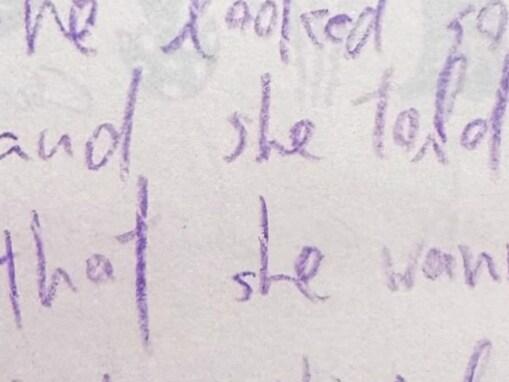 he looked so
and she told
that she wan